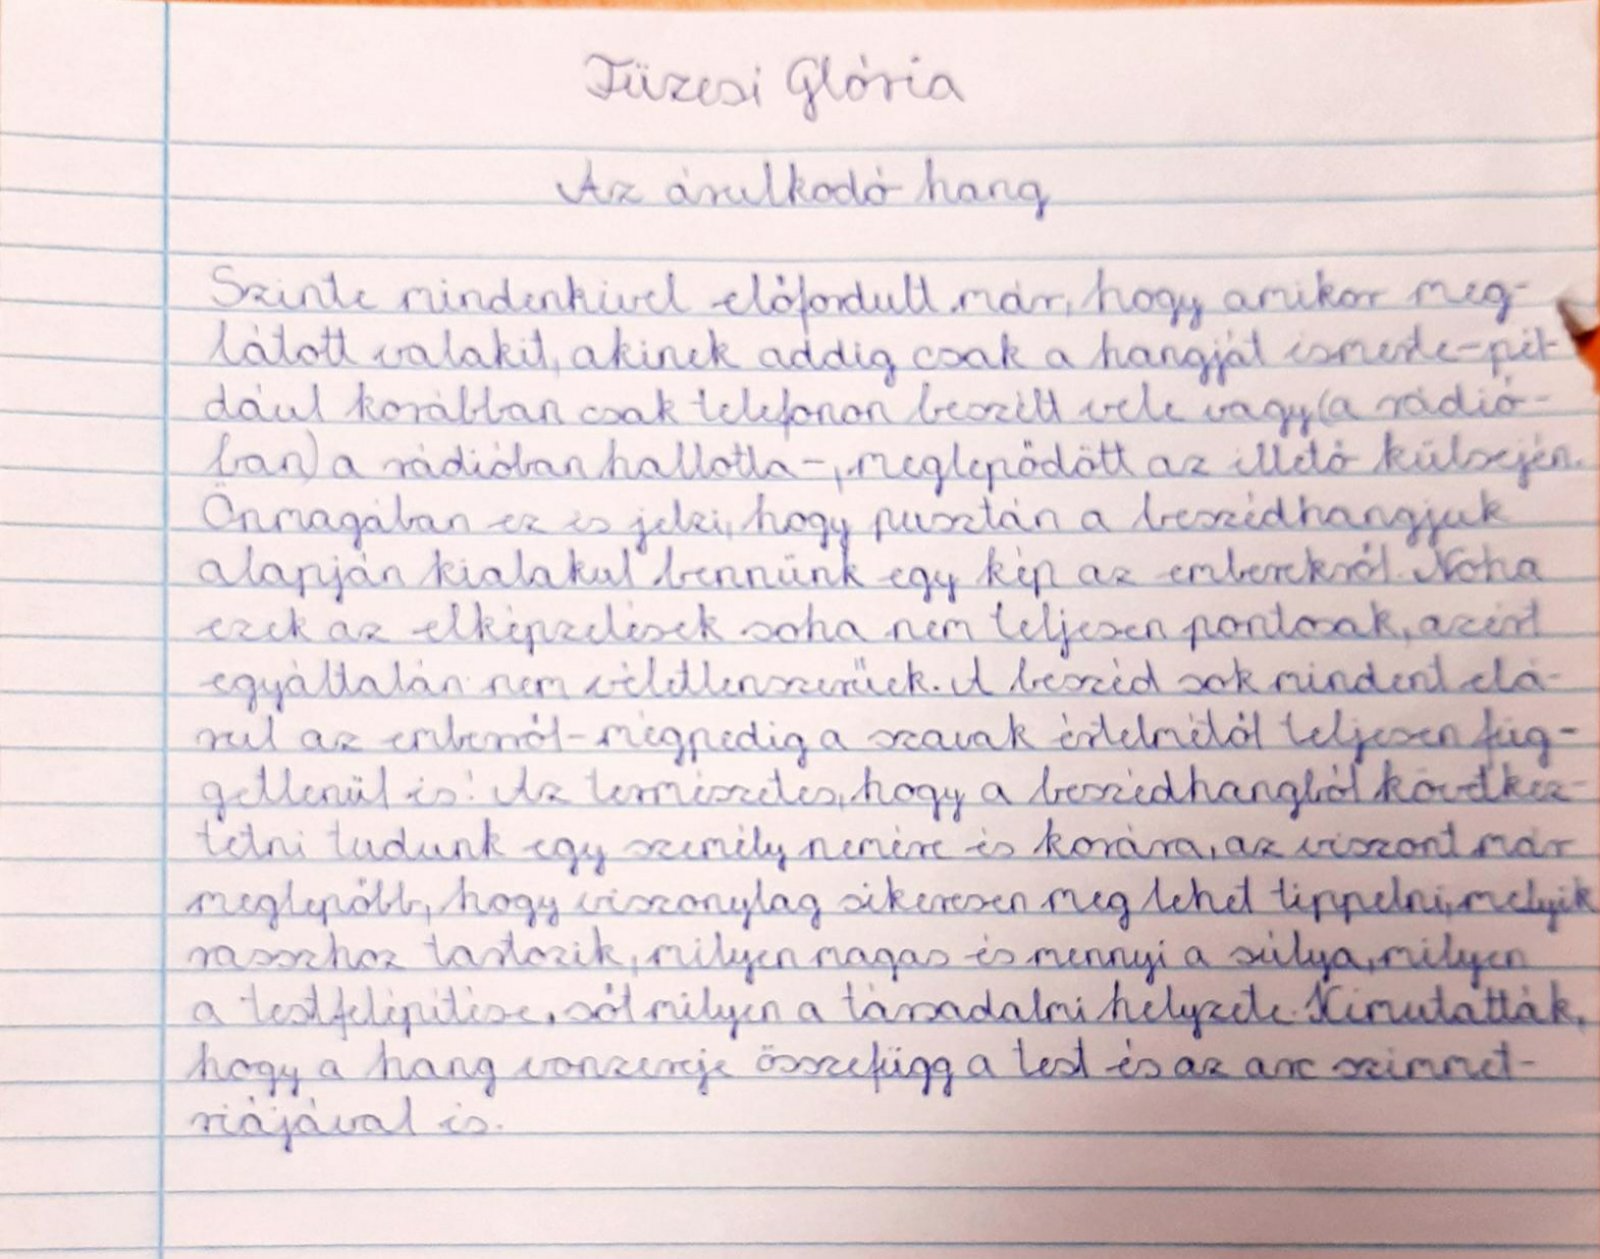 Tüzesi Glória
Az árulkodó hang
Szinte mindenkivel előfordult már, hogy amikor meg-
látott valakit, akinek addig csak a hangját ismerte - pél-
dául korábban csak telefonon beszélt vele vagy (a rádió-
ban) a rádióban hallotta -, meglepődött az illető külsején.
Önmagában ez is jelzi, hogy pusztán a beszédhangjuk
alapján kialakul bennünk egy kép az emberekről. Noha
ezek az elképzelések soha nem teljesen pontosak, azért
egyáltalán nem véletlenszerűek. A beszéd sok mindent elá-
rul az emberről - mégpedig a szavak értelmétől teljesen füg-
getlenül is! Az természetes, hogy a beszédhangból következ-
tetni tudunk egy személy nemére és korára, az viszont már
meglepőbb, hogy viszonylag sikeresen meg lehet tippelni, melyik
rasszhoz tartozik, milyen magas és mennyi a súlya, milyen
a testfelépítése, sőt milyen a társadalmi helyzete. Kimutatták,
hogy a hang vonzereje összefügg a test és az arc szimmet-
riájával is.